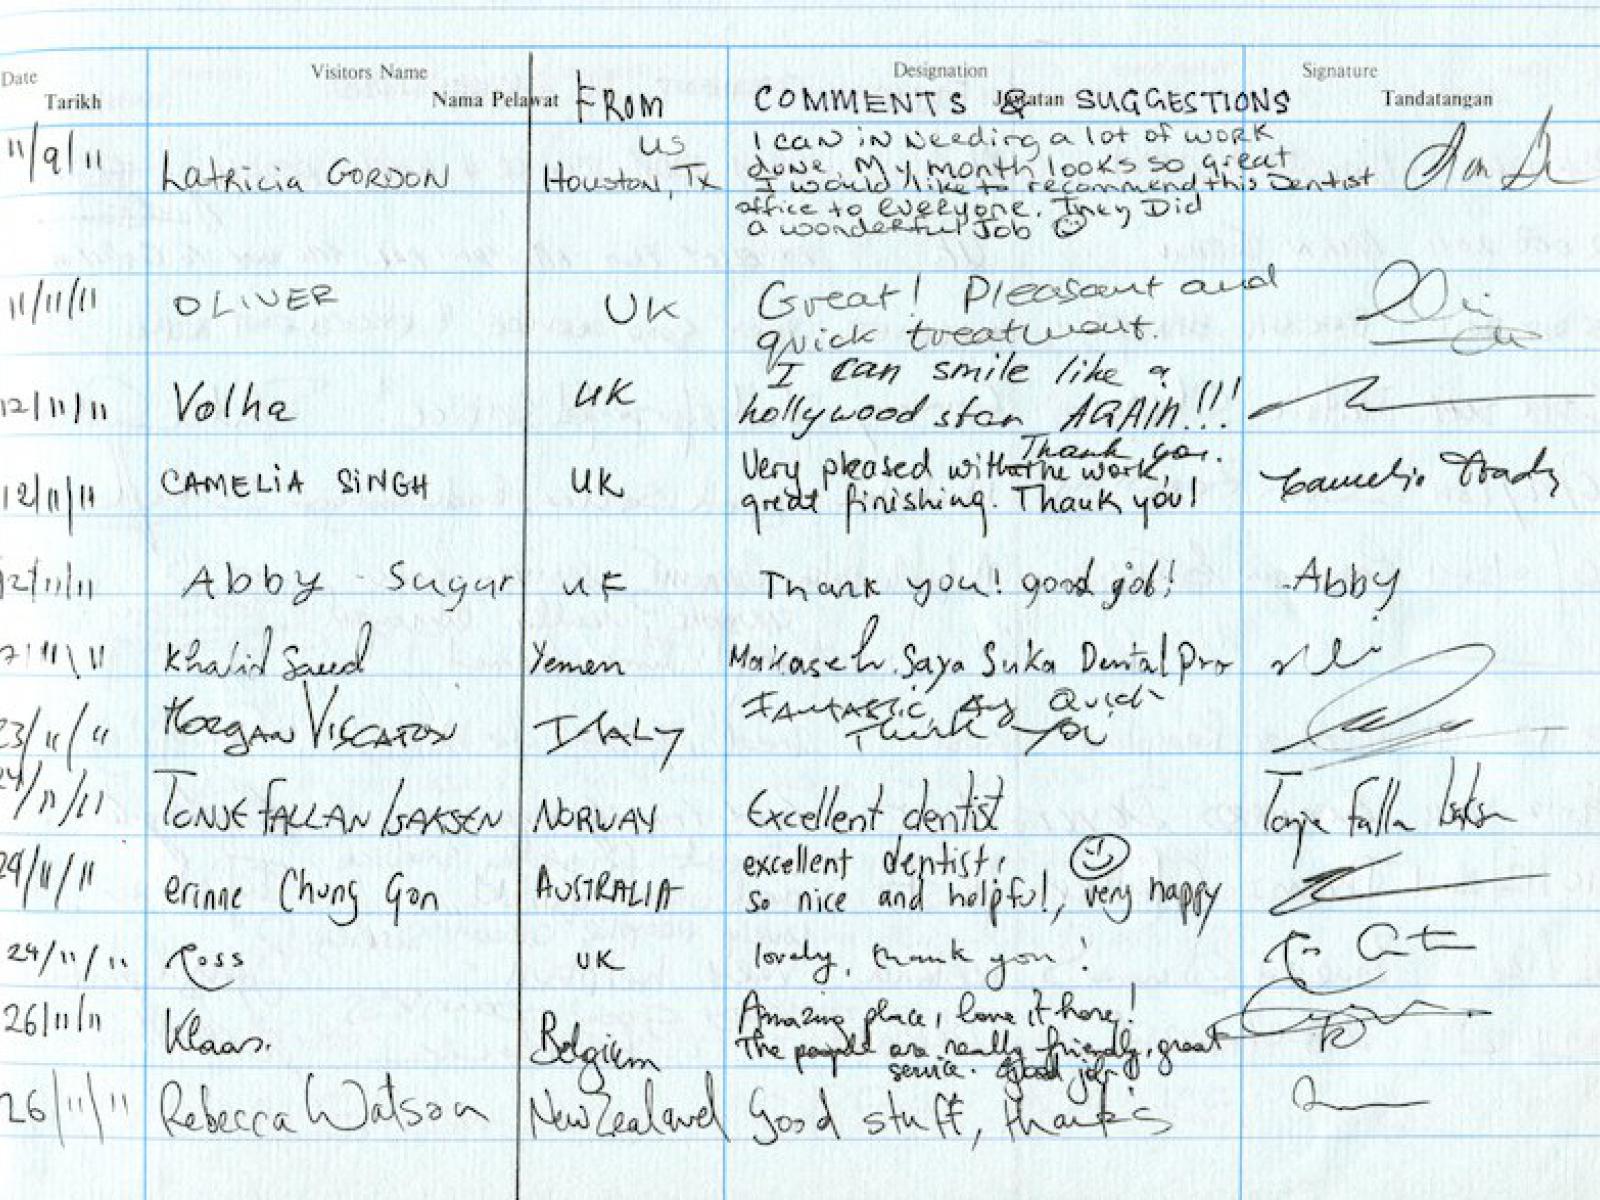 Date Visitors Name Designation Signature
Tarikh Nama Pelawat FROM COMMENTS & SUGGESTIONS Tandatangan
11/9/11 Latricia GORDON US I can in Needing a lot of work
Houston, Tx done. My month looks so great
I would like to recommend this Dentist
office to everyone. They Did
a wonderful Job
11/11/11 OLIVER UK Great! Pleasant and
quick treatment.
12/11/11 Volha UK I can smile like a
hollywood star AGAIN!!!
Thank you.
12/11/11 CAMELIA SINGH UK Very pleased with the work,
great finishing. Thank you!
12/11/11 Abby Sugar UK Thank you! good job! Abby
Khalid Saeed Yemen Makaseh. Saya Suka Dental Pro
23/11/11 MORGAN ITALY FANTASTIC, Quick
Thank You
24/11/11 TONJE FALLAN ISAKSEN NORWAY Excellent dentist Tonje Falla Isaksn
24/11/11 erinne Chung Gon AUSTRALIA excellent dentist,
so nice and helpful!, very happy
24/11/11 Ross UK lovely, thank you!
26/11/11 Klaas. Belgium Amazing place, love it here!
The people are really friendly, great
service. Good job!
26/11/11 Rebecca Watson New Zealand Good stuff, thanks